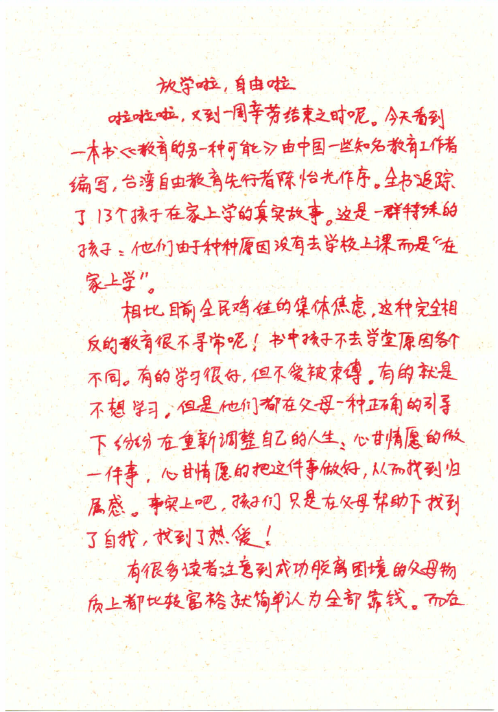 放学啦，自由啦
啦啦啦，又到一周辛劳结束之时呢。今天看到
一本书《教育的另一种可能》由中国一些知名教育工作者
编写，台湾自由教育先行者陈怡光作序。全书追踪
了13个孩子在家上学的真实故事。这是一群特殊的
孩子：他们由于种种原因没有去学校上课而是“在
家上学”。
相比目前全民鸡娃的集体焦虑，这种完全相
反的教育很不寻常呢！书中孩子不去学堂原因各个
不同。有的学习很好，但不爱被束缚。有的就是
不想学习。但是他们都在父母一种正确的引导
下纷纷在重新调整自己的人生、心甘情愿的做
一件事，心甘情愿的把这件事做好，从而找到归
属感。事实上吧，孩子们只是在父母帮助下找到
了自我，找到了热爱！
有很多读者注意到成功脱离困境的父母物
质上都比较富裕就简单认为全部靠钱。而在